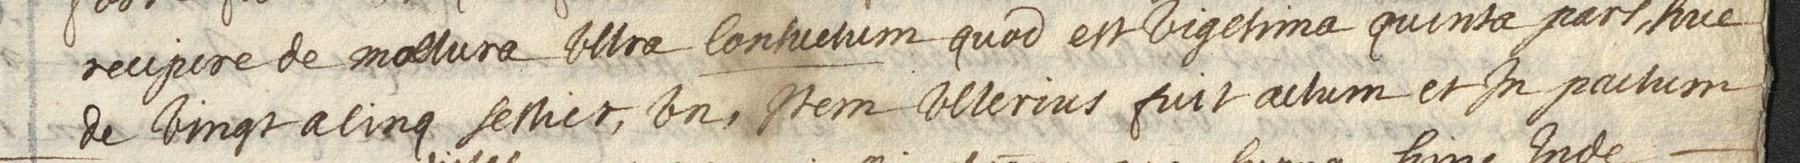 recipere de moltura Vltra Consuetum quod est Vigesima quinta pars, hue
de Vingt a Cinq sestier, Vn, Item Vlterius fuit actum et In pactum
hinc Inde